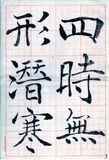 四時無
形潛寒